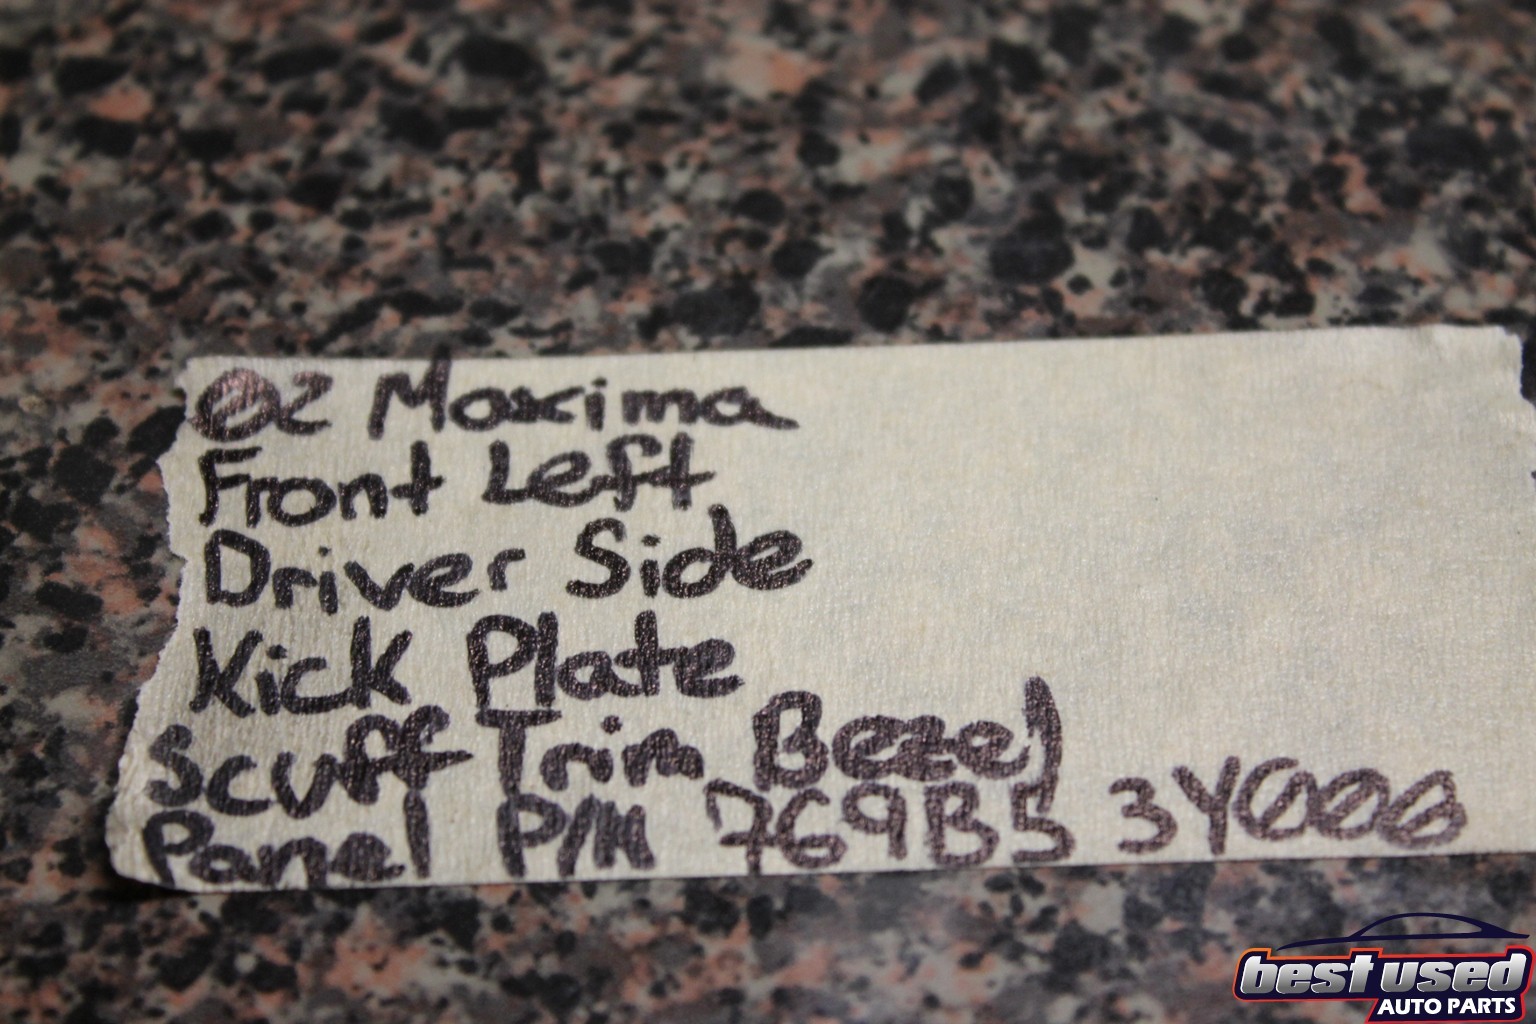 02 Maxima
Front Left
Driver Side
Kick Plate
Scuff Trim Bezel
Panel P/N 769B5 3Y000
best used
AUTO PARTS